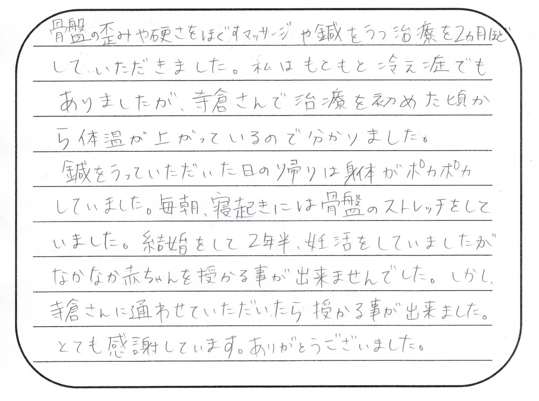 骨盤の歪みや硬さをほぐすマッサージや鍼をうつ治療を2ヵ月ほど
して、いただきました。私はもともと冷え症でも
ありましたが、寺倉さんで治療を初めた頃か
ら体温が上がっているので分かりました。
鍼をうっていただいた日の帰りは身体がポカポカ
していました。毎朝、寝起きには骨盤のストレッチをして
いました。結婚をして2年半、妊活をしていましたが
なかなか赤ちゃんを授かる事が出来ませんでした。しかし、
寺倉さんに通わせていただいたら授かる事が出来ました。
とても感謝しています。ありがとうございました。